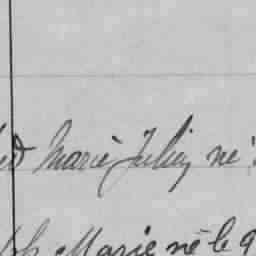 Marie Julien né
Marie né le 9